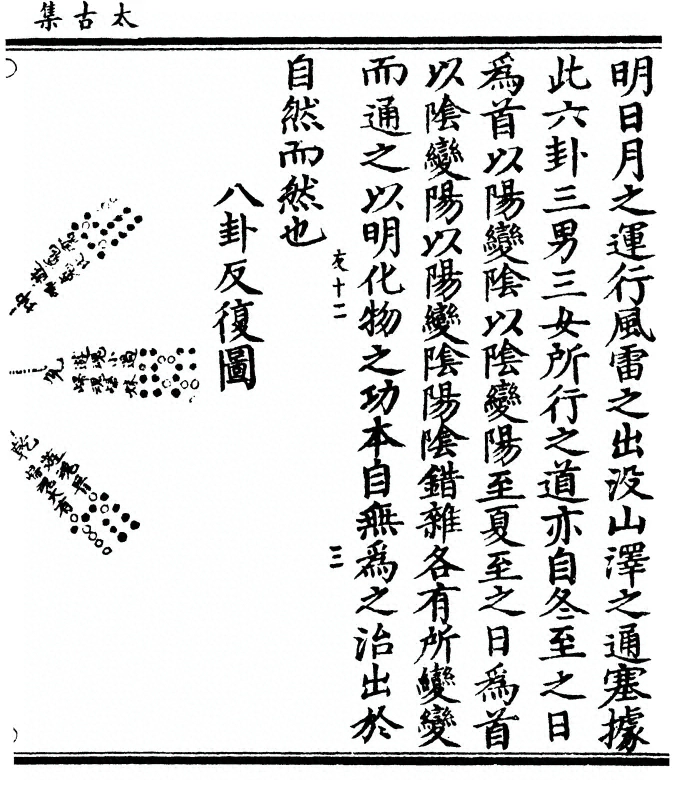 太古集
明日月之運行風雷之出没山澤之通塞據
此六卦三男三女所行之道亦自冬至之日
為首以陽變陰以陰變陽至夏至之日為首
以陰變陽以陽變陰陽陰錯雜各有所變變
而通之以明化物之功本自無為之治出於
友十二
三
自然而然也
八卦反復圖
遊䰟小過
歸䰟
乾
大有